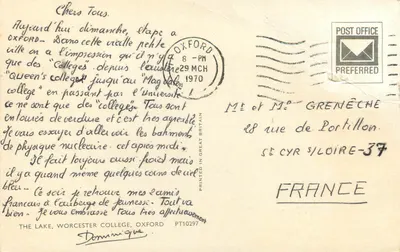 Chers Tous.
Aujourd'hui dimanche, étape à
OXFORD.- Dans cette vieille petite
ville on a l'impression qu'il n'y a
que des "Collèges" depuis l'
"QUEEN'S college" jusqu'au "Magdalen
college" en passant par l'Université
ce ne sont que des "collèges". Tous sont
entourés de verdure et c'est très agréable
Je vais essayer d'aller voir les bâtiments
de physique nucléaire. cet après midi.
Il fait toujours aussi froid mais
il y a quand même quelques coins de ciel
bleu.- Ce soir je retrouve mes amis
français à l'auberge de jeunesse. Tout va
bien. Je vous embrasse tous très affectueusement
Dominique
THE LAKE, WORCESTER COLLEGE, OXFORD PT10297
PRINTED IN GREAT BRITAIN
OXFORD
6-PM
29 MCH
1970
POST OFFICE
PREFERRED
Mr et Me GRENÈCHE
28 rue de Portillon
St CYR S/LOIRE-37
FRANCE